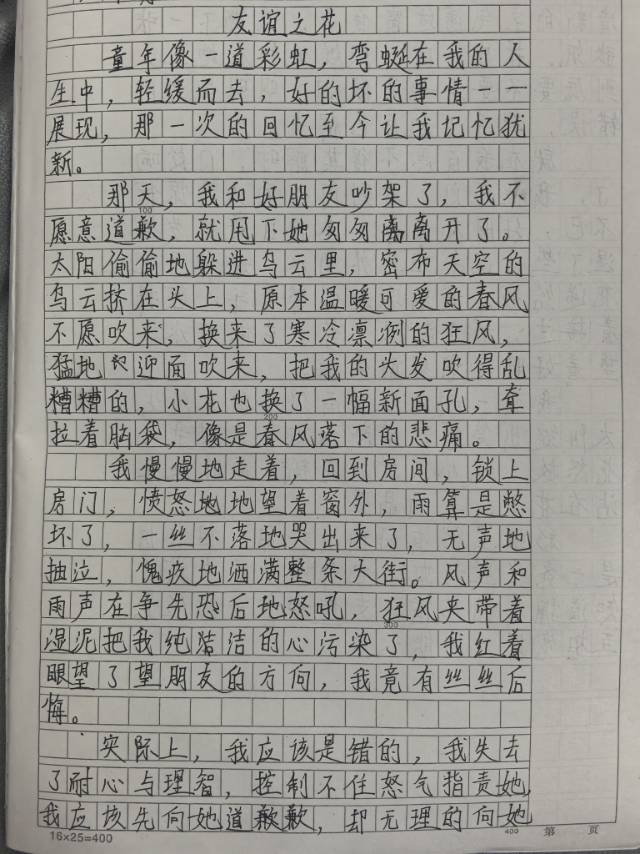 友谊之花
童年像一道彩虹，弯蜒在我的人
生中，轻缓而去，好的坏的事情一一
展现，那一次的回忆至今让我记忆犹
新。
那天，我和好朋友吵架了，我不
愿意道歉，就甩下她匆匆离离开了。
太阳偷偷地躲进乌云里，密布天空的
乌云挤在头上，原本温暖可爱的春风
不愿吹来，换来了寒冷凛冽的狂风，
猛地的迎面吹来，把我的头发吹得乱
糟糟的，小花也换了一幅新面孔，耷
拉着脑袋，像是春风落下的悲痛。
我慢慢地走着，回到房间，锁上
房门，愤怒地地望着窗外，雨算是憋
坏了，一丝不落地哭出来了，无声地
抽泣，愧疚地洒满整条大街。风声和
雨声在争先恐后地怒吼，狂风夹带着
湿泥把我纯洁洁的心污染了，我红着
眼望了望朋友的方向，我竟有丝丝后
悔。
实际上，我应该是错的，我失去
了耐心与理智，控制不住怒气指责她，
我应该先向她道歉歉，却无理的向她
16×25=400
400 第 页